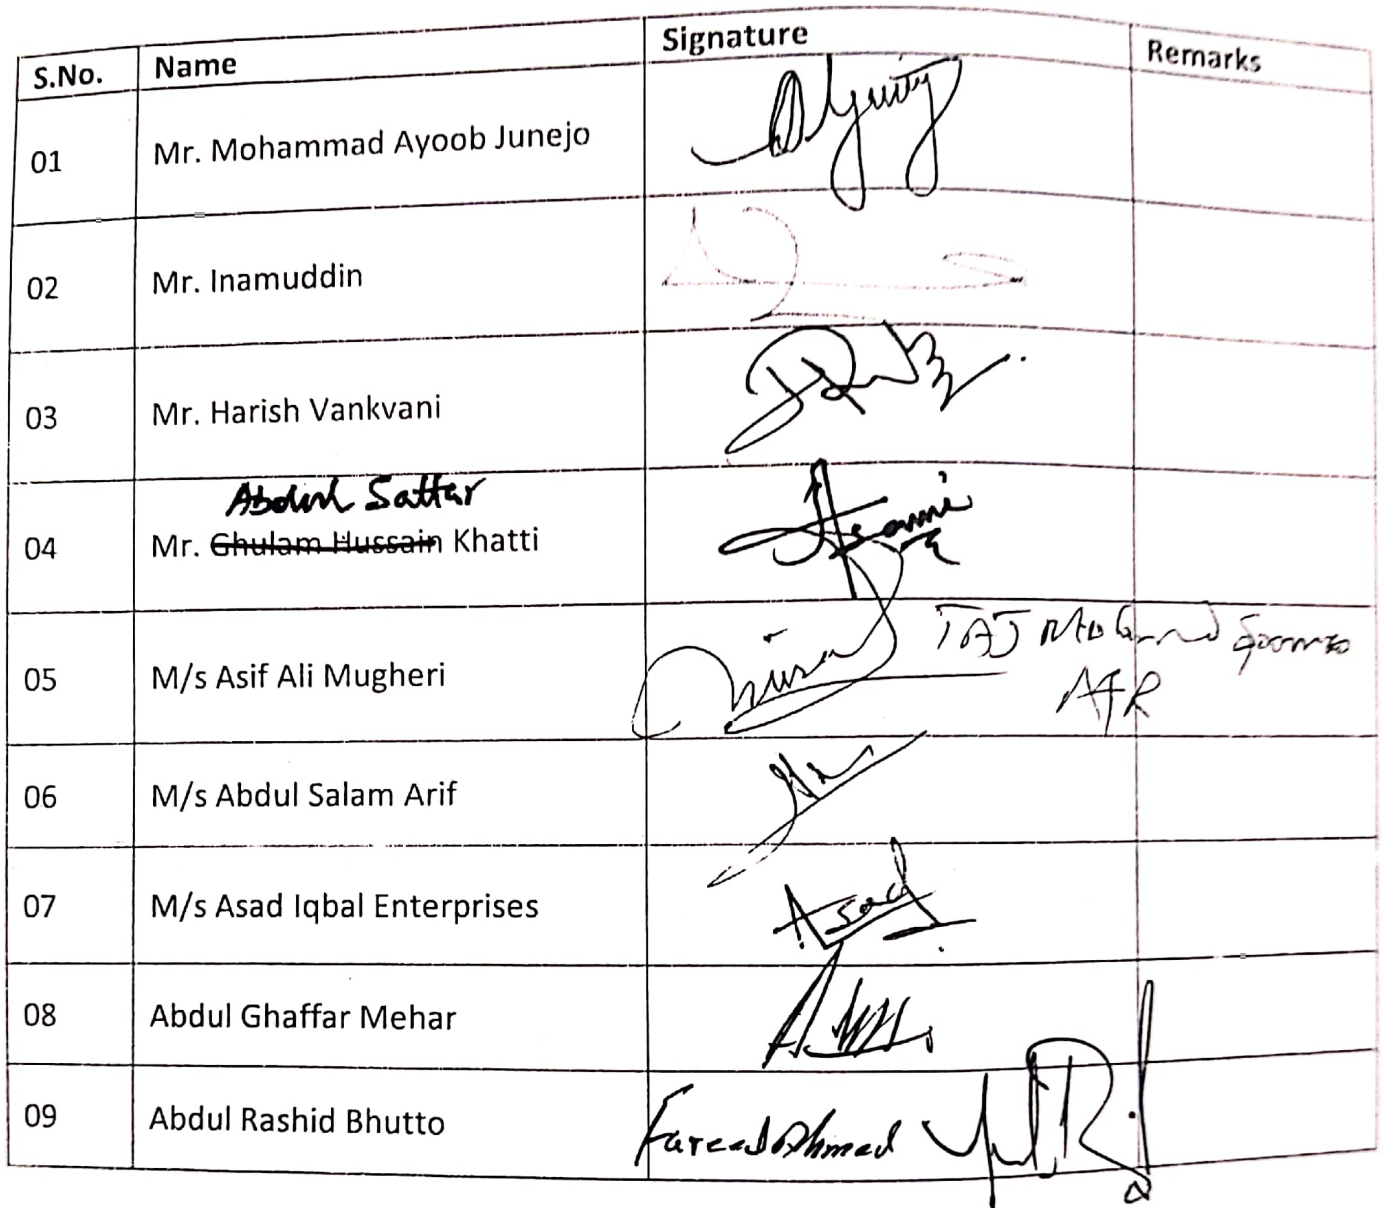 S.No. Name Signature Remarks
01 Mr. Mohammad Ayoob Junejo
02 Mr. Inamuddin
03 Mr. Harish Vankvani
Abdul Sattar
04 Mr. Ghulam Hussain Khatti
05 M/s Asif Ali Mugheri
06 M/s Abdul Salam Arif
07 M/s Asad Iqbal Enterprises Asad
08 Abdul Ghaffar Mehar
09 Abdul Rashid Bhutto Fareed Ahmed